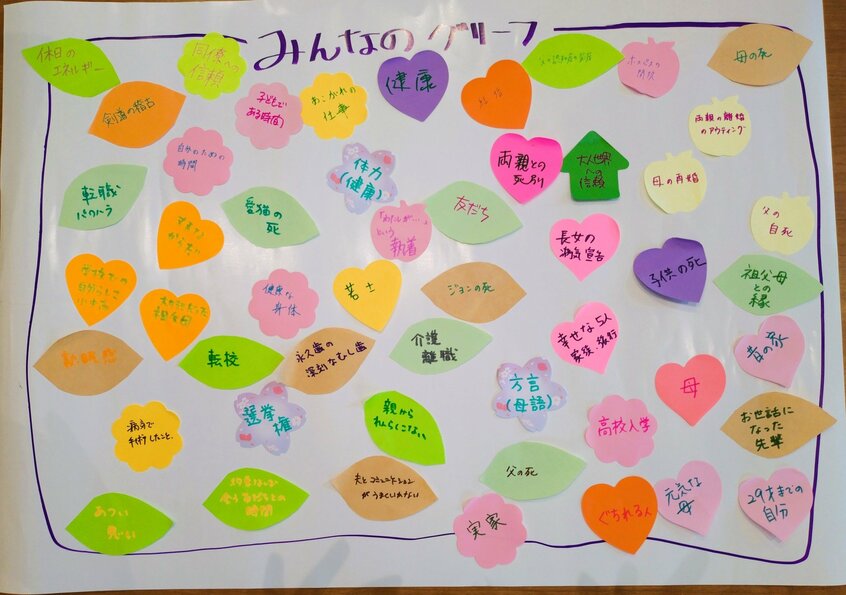 みんなのグリーフ
休日の
エネルギー
同僚への
信頼
子どもで
ある時間
あこがれの
仕事
健康
母の死
剣道の稽古
自分のための
時間
体力
(健康)
両親との
死別
大人世界
への
信頼
両親の離婚
のアウティング
母の再婚
転職
パワハラ
愛猫の
死
「わたしが…」
という
執着
友だち
長女の
病気宣告
子供の死
父の
自死
祖父母
との
縁
健康な
身体
若士
ジョンの死
転校
永久歯の
深刻なむし歯
介護
離職
幸せな5人
家族・旅行
昔の家
選挙
権
方言
(母語)
母
病気で
手術したこと。
高校入学
お世話に
なった
先輩
父の死
夫とコミュニケーション
がうまくいかない
あつい
思い
実家
ぐちれる人
元気な
母
29才までの
自分